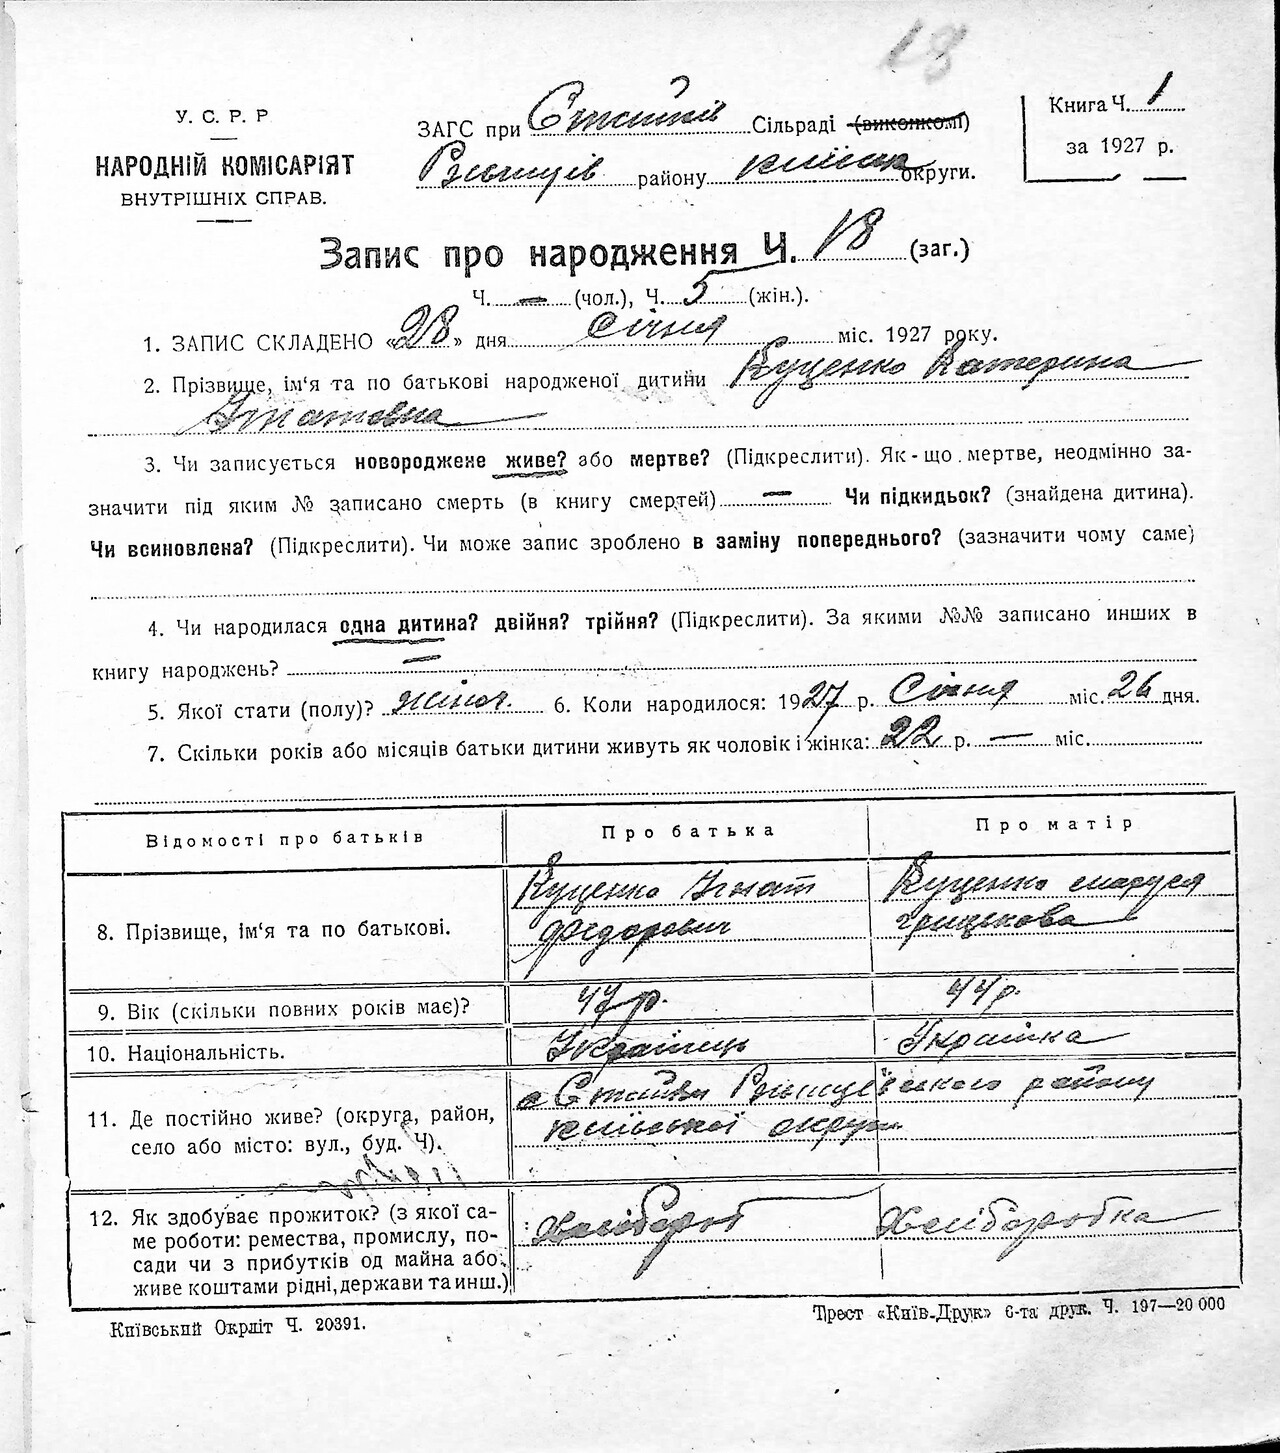 18
У. С. Р. Р
НАРОДНІЙ КОМІСАРІЯТ
ВНУТРІШНІХ СПРАВ.
ЗАГС при Стайків Сільраді (виконкомі)
Ржищів району Київськ округи.
Книга Ч. 1
за 1927 р.
Запис про народження Ч. 18 (заг.)
Ч. — (чол.), Ч. 5 (жін.).
1. ЗАПИС СКЛАДЕНО «28» дня Січня міс. 1927 року.
2. Прізвище, ім'я та по батькові народженої дитини Куценко Катерина
Ігнатовна
3. Чи записується новороджене живе? або мертве? (Підкреслити). Як-що мертве, неодмінно за-
значити під яким № записано смерть (в книгу смертей) — Чи підкидьок? (знайдена дитина).
Чи всиновлена? (Підкреслити). Чи може запис зроблено в заміну попереднього? (зазначити чому саме)
4. Чи народилася одна дитина? двійня? трійня? (Підкреслити). За якими №№ записано инших в
книгу народжень? —
5. Якої стати (полу)? жіноч. 6. Коли народилося: 1927 р. Січня міс. 26 дня.
7. Скільки років або місяців батьки дитини живуть як чоловік і жінка: 22 р. — міс.
Відомості про батьків Про батька Про матір
8. Прізвище, ім'я та по батькові. Куценко Ігнат Федорович Куценко Маруся Грицькова
9. Вік (скільки повних років має)? 47 р. 44 р.
10. Національність. Українець Українка
11. Де постійно живе? (округа, район,
село або місто: вул., буд. Ч). с Стайки Ржищівського району
Київської округи
12. Як здобуває прожиток? (з якої са-
ме роботи: ремества, промислу, по-
сади чи з прибутків од майна або
живе коштами рідні, держави та инш.) Хлібороб Хліборобка
Київський Окрліт Ч. 20391.
Трест «Київ-Друк» 6-та друк. Ч. 197—20 000